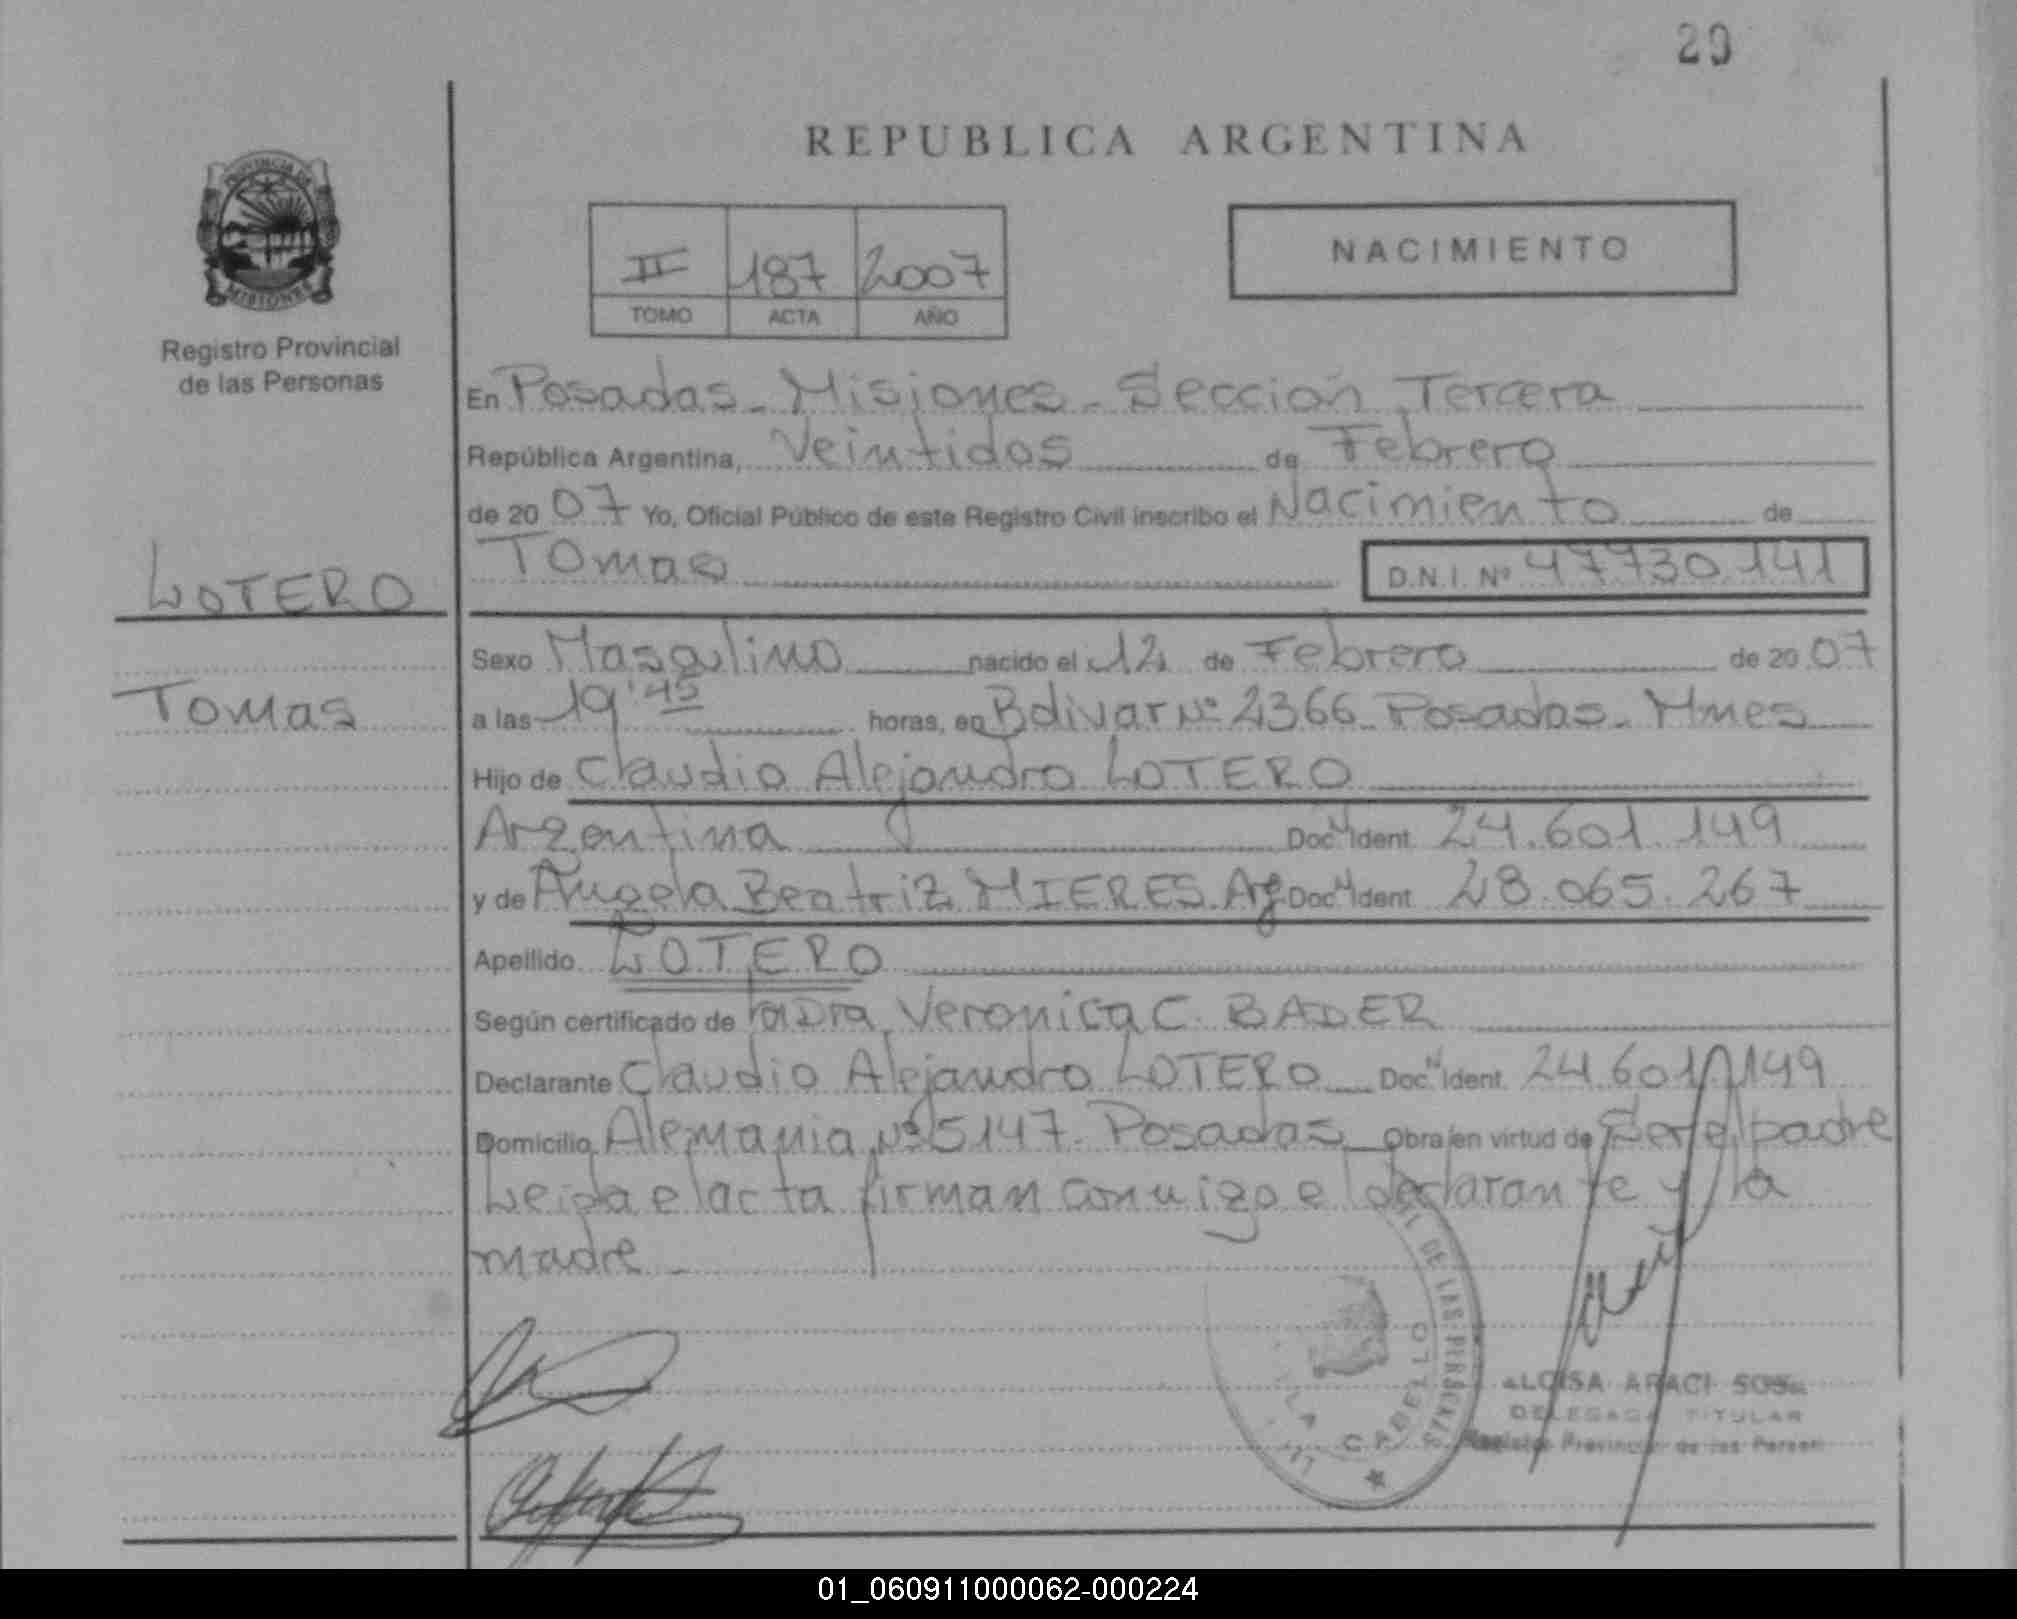 29
REPUBLICA ARGENTINA
PROVINCIA DE
MISIONES
Registro Provincial
de las Personas
II 187 2007
TOMO ACTA AÑO
NACIMIENTO
En Posadas - Misiones - Sección Tercera
República Argentina, Veintidos de Febrero
de 20 07 Yo, Oficial Público de este Registro Civil inscribo el Nacimiento de
LOTERO
Tomas D.N.I. Nº 47.730.141
Sexo Masculino nacido el 12 de Febrero de 20 07
Tomas
a las 19:45 horas, en Bolivar Nº 2366 Posadas - Mnes
Hijo de Claudio Alejandro LOTERO
Argentina Doc N Ident. 24.601.149
y de Angela Beatriz MIERES. Arg Doc N Ident. 28.065.267
Apellido LOTERO
Según certificado de la Dra Veronica C. BADER
Declarante Claudio Alejandro LOTERO Doc N Ident. 24.601.149
Domicilio Alemania Nº 5147 - Posadas Obra en virtud de Ser el padre
Leida el acta firman conmigo el declarante y la
madre -
DE LAS PERSONAS
VILLA CABELLO
ARACI SOSA
DELEGADA TITULAR
Registro Provincial de las Person
01_060911000062-000224